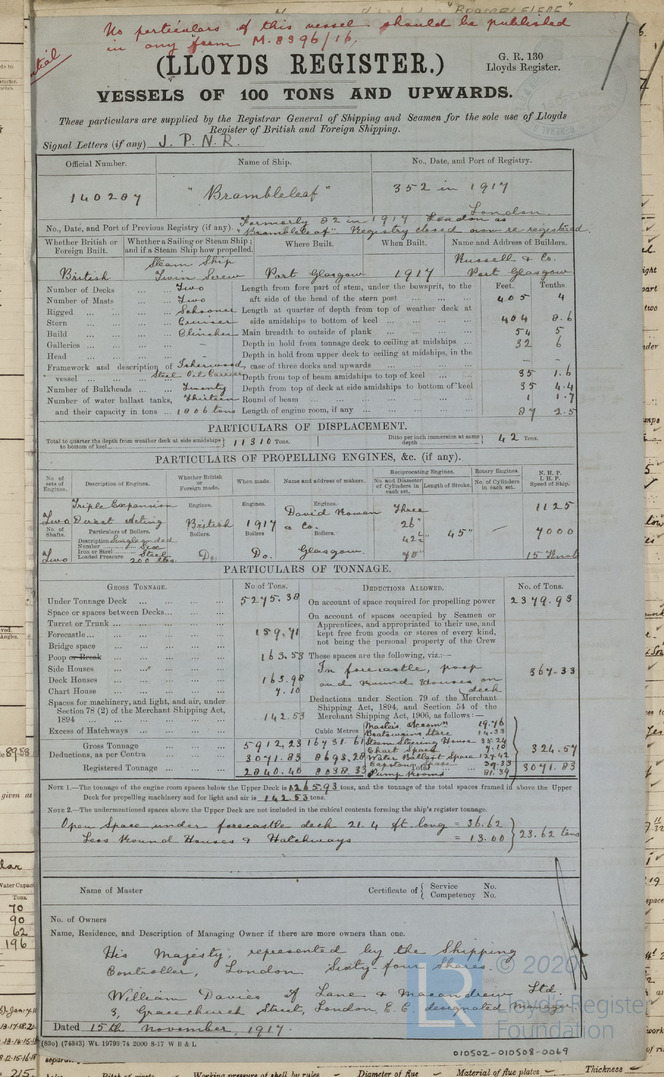 No particulars of this vessel should be published
in any form M.8396/16.
(LLOYDS REGISTER.)
G. R. 130
Lloyds Register.
VESSELS OF 100 TONS AND UPWARDS.
These particulars are supplied by the Registrar General of Shipping and Seamen for the sole use of Lloyds
Register of British and Foreign Shipping.
Signal Letters (if any) J. P. N. R.
Official Number. Name of Ship. No., Date, and Port of Registry.
140287 "Brambleleaf" 352 in 1917
London.
No., Date, and Port of Previous Registry (if any). Formerly 82 in 1917 London as
"Brambleleaf". Registry closed now re-registered.
Whether British or Foreign Built. Whether a Sailing or Steam Ship; and if a Steam Ship how propelled. Where Built. When Built. Name and Address of Builders.
British Steam Ship Twin Screw Port Glasgow 1917 Russell & Co. Port Glasgow
Number of Decks Two Length from fore part of stem, under the bowsprit, to the Feet. Tenths
Number of Masts Two aft side of the head of the stern post 405 4
Rigged Schooner Length at quarter of depth from top of weather deck at
Stern Cruiser side amidships to bottom of keel 404 8.6
Build Clincher Main breadth to outside of plank 54 5
Galleries – Depth in hold from tonnage deck to ceiling at midships 32 6
Head – Depth in hold from upper deck to ceiling at midships, in the
Framework and description of Isherwood case of three decks and upwards – –
vessel Steel Oil Carrier Depth from top of beam amidships to top of keel 35 1.6
Number of Bulkheads Twenty Depth from top of deck at side amidships to bottom of keel 35 4.4
Number of water ballast tanks, Thirteen Round of beam 1 1.7
and their capacity in tons 1806 tons Length of engine room, if any 87 2.5
PARTICULARS OF DISPLACEMENT.
Total to quarter the depth from weather deck at side amidships to bottom of keel 11310 Tons. Ditto per inch immersion at same depth 42 Tons.
PARTICULARS OF PROPELLING ENGINES, &c. (if any).
No. of sets of Engines. Description of Engines. Whether British or Foreign made. When made. Name and address of makers. Reciprocating Engines. Rotary Engines. N. H. P. I. H. P. Speed of Ship.
No. and Diameter of Cylinders in each set. Length of Stroke. No. of Cylinders in each set.
Two Triple Expansion Direct Acting Engines. British Engines. 1917 Engines. David Rowan & Co. Three 26" 42½" 70" 45" – 1125 7000 15 Knots
No. of Shafts. Two Particulars of Boilers. Description Single ended Number Six Iron or Steel Steel Loaded Pressure 200 lbs. Boilers. Do. Boilers Do. Boilers. Glasgow
PARTICULARS OF TONNAGE.
GROSS TONNAGE. No of Tons. DEDUCTIONS ALLOWED. No. of Tons.
Under Tonnage Deck 5275.38 On account of space required for propelling power 2379.93
Space or spaces between Decks On account of spaces occupied by Seamen or
Turret or Trunk Apprentices, and appropriated to their use, and
Forecastle 159.71 kept free from goods or stores of every kind,
Bridge space not being the personal property of the Crew
Poop or Break 163.53 These spaces are the following, viz.:—
Side Houses In forecastle, poop 367.33
Deck Houses 163.98 and round houses on
Chart House 7.10 deck
Spaces for machinery, and light, and air, under Section 78 (2) of the Merchant Shipping Act, 1894 142.53 Deductions under Section 79 of the Merchant Shipping Act, 1894, and Section 54 of the Merchant Shipping Act, 1906, as follows:—
Excess of Hatchways Cubic Metres Master's Accomn 19.76
Boatswains Store 14.33
Gross Tonnage 5912.23 16731.61 Steam Steering House
Deductions, as per Contra 3071.83 8693.28 Chart Space 7.10 324.57
Water Ballast Space
Registered Tonnage 2840.40 8038.33 Total 3071.83
Pump Rooms
NOTE 1.—The tonnage of the engine room spaces below the Upper Deck is 1265.93 tons, and the tonnage of the total spaces framed in above the Upper
Deck for propelling machinery and for light and air is 142.53 tons.
NOTE 2.—The undermentioned spaces above the Upper Deck are not included in the cubical contents forming the ship's register tonnage.
Open Space under forecastle deck 21.4 ft. long = 36.62
Less Round Houses & Hatchways = 13.00 23.62 tons
Name of Master Certificate of Service No.
Competency No.
No. of Owners
Name, Residence, and Description of Managing Owner if there are more owners than one.
His Majesty represented by the Shipping
Controller, London Sixty-four shares.
William Davies of Lane & Macandrew Ltd.
3, Gracechurch Street, London E.C. designated manager
Dated 15th November, 1917.
(83o) (74343) Wt. 19793/74 2000 8-17 W B & L
010502-010508-0069
LR © 2020
Lloyd's Register
Foundation